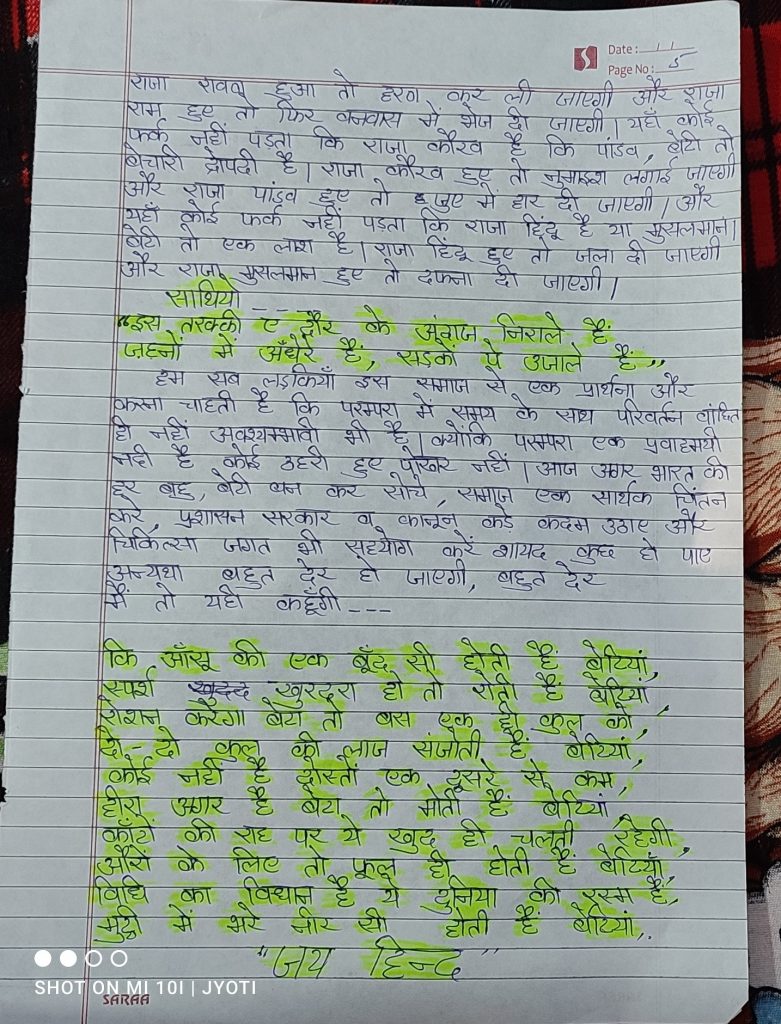 Date: / /
Page No: 5
राजा रावण हुआ तो हरण कर ली जाएगी और राजा
राम हुए तो फिर वनवास में भेज दी जाएगी। यहाँ कोई
फर्क नहीं पड़ता कि राजा कौरव है कि पांडव, बेटी तो
बेचारी द्रोपदी है। राजा कौरव हुए तो नुमाइश लगाई जाएगी
और राजा पांडव हुए तो जुए में हार दी जाएगी। और
यहाँ कोई फर्क नहीं पड़ता कि राजा हिंदू है या मुसलमान।
बेटी तो एक लाश है। राजा हिंदू हुए तो जला दी जाएगी
और राजा मुसलमान हुए तो दफना दी जाएगी।
साथियो ----
"इस तरक्की ए दौर के अंदाज निराले हैं
जहनों में अँधेरे हैं, सड़कों पे उजाले हैं"
हम सब लड़कियाँ इस समाज से एक प्रार्थना और
करना चाहती है कि परम्परा में समय के साथ परिवर्तन वांछित
ही नहीं अवश्यम्भावी भी है। क्योंकि परम्परा एक प्रवाहमयी
नदी है कोई ठहरी हुए पोखर नहीं। आज अगर भारत की
हर बहु, बेटी बन कर सोचे, समाज एक सार्थक चिंतन
करे, प्रशासन सरकार व कानून कड़े कदम उठाए और
चिकित्सा जगत भी सहयोग करें शायद कुछ हो पाए
अन्यथा बहुत देर हो जाएगी, बहुत देर
मैं तो यही कहूँगी ---
कि आँसू की एक बूँद सी होती हैं बेटियां,
स्पर्श खुरदरा हो तो रोती हैं बेटियां
रोशन करेगा बेटा तो बस एक ही कुल को,
दो-दो कुल की लाज संजोती हैं बेटियां,
कोई नहीं है दोस्तों एक दूसरे से कम,
हीरा अगर है बेटा तो मोती हैं बेटियां
काँटो की राह पर ये खुद ही चलती रहेगी,
औरों के लिए तो फूल ही होती हैं बेटियाँ,
विधि का विधान है ये दुनिया की रस्म है,
मुट्ठी में भरे नीर सी होती हैं बेटियां,.
"जय हिन्द"
SHOT ON MI 10I | JYOTI
SARAA